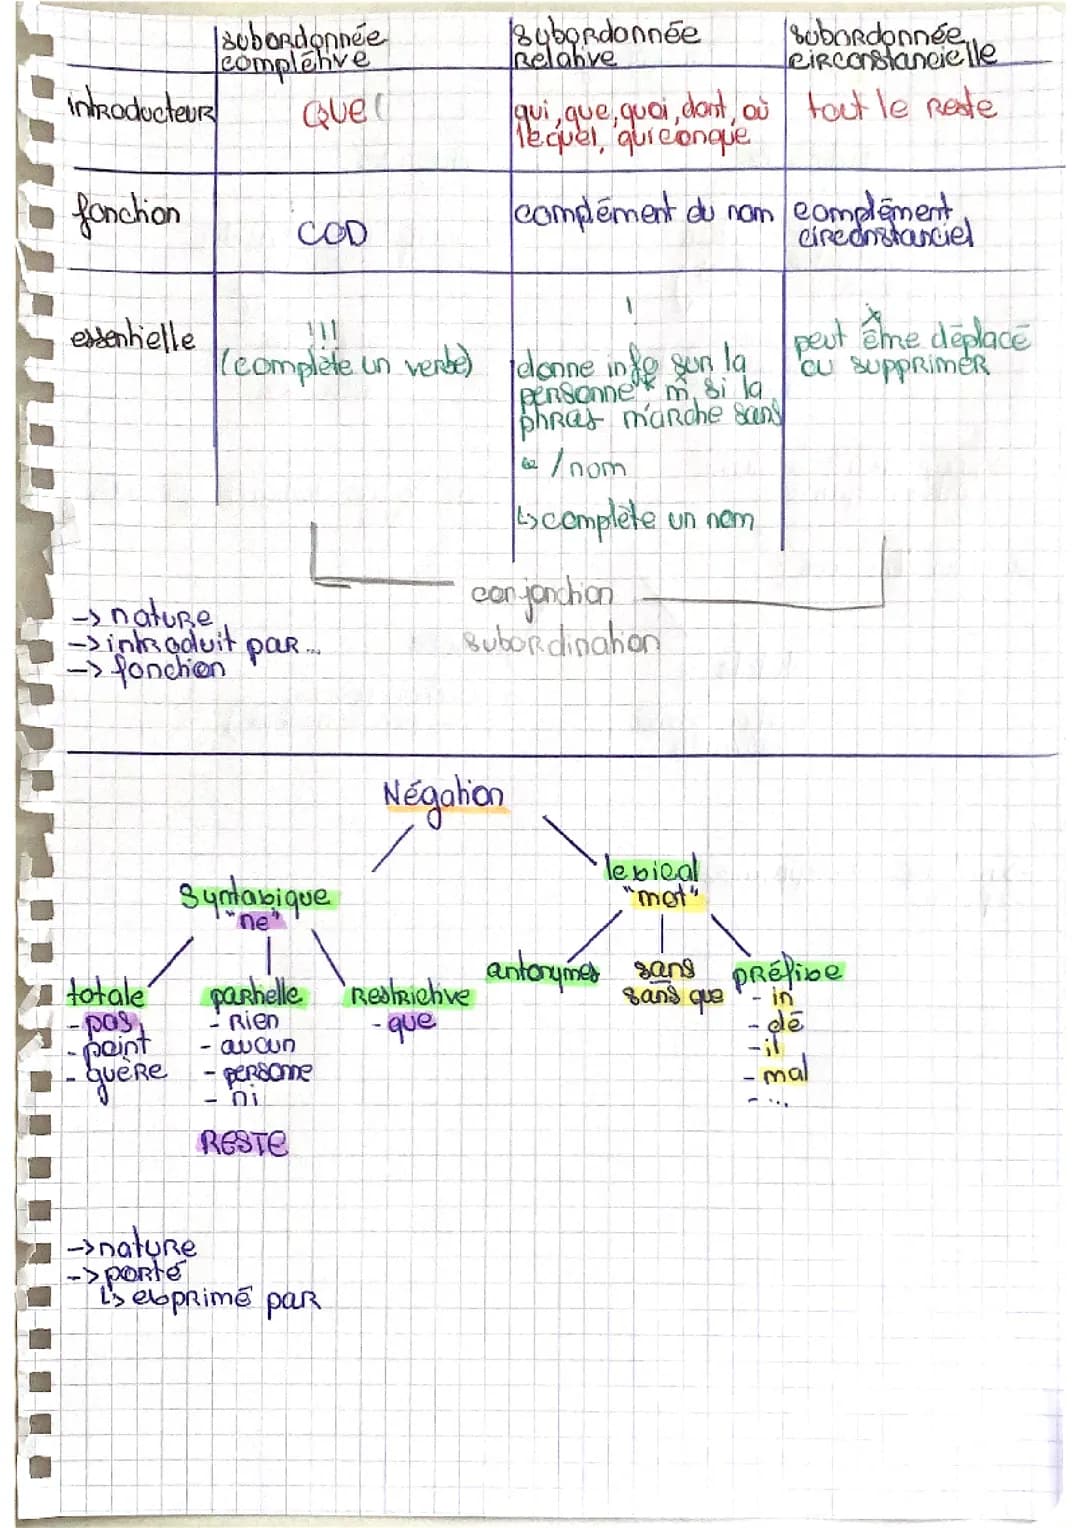 subordonnée complétive
subordonnée Relative
subordonnée circonstancielle
introducteur
QUE
qui, que, quoi, dont, où
lequel, quiconque
tout le Reste
fonction
COD
complément du nom
complément
circonstanciel
essentielle
!!!
(complète un verbe)
!
donne info sur la
personne * m si la
phras marche sans
* / nom
↳ complète un nom
x
peut être déplacé
ou supprimer
conjonction
subordination
-> nature
-> introduit par...
-> fonction
Négation
Syntaxique
"ne"
lexical
"mot"
totale
- pas
- point
- guère
partielle
- Rien
- aucun
- personne
- ni
RESTE
Restrictive
- que
antonymes
sans
sans que
préfixe
- in
- dé
- il
- mal
- ...
-> nature
-> porté
↳ exprimé par